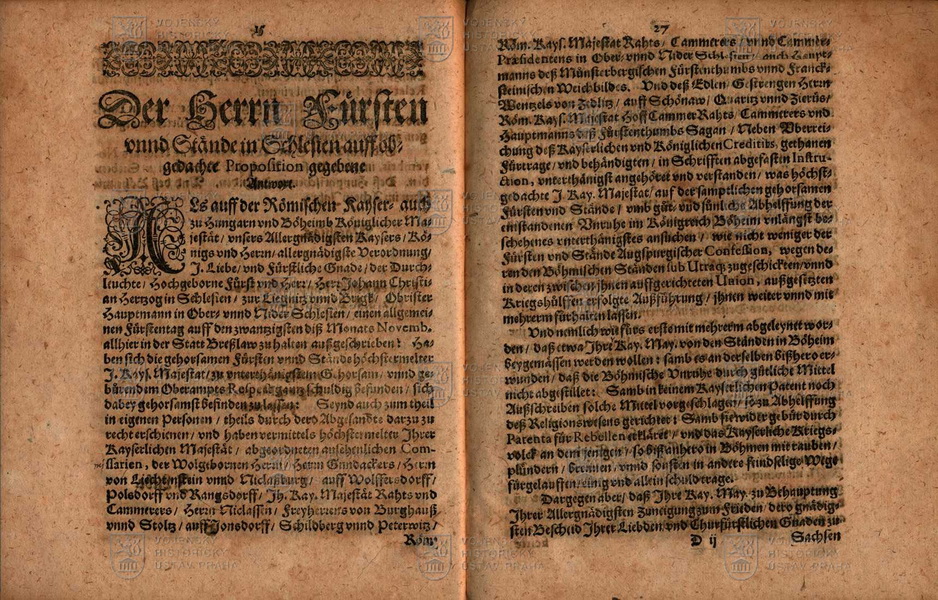 Der Herrn Fürsten
vnnd Stände in Schlesien auff ob-
gedachte Proposition gegebene
Antwort.
ALs auff der Römischen Kayser- auch
zu Hungarn vnd Böheimb Königlicher Ma-
jestät / vnsers Allergnädigsten Kaysers / Kö-
nigs vnd Herrn / allergnädigste Verordnung /
J. Liebe / vnd Fürstliche Gnade / der Durch-
leuchte / Hochgeborne Fürst vnd Herr / Herr Johann Christi-
an Hertzog in Schlesien / zur Liegnitz vnnd Brieg / Obrister
Hauptmann in Ober- vnnd Nider Schlesien / einen allgemei-
nen Fürstentag auff den zwanzigsten diß Monats Novemb.
allhier in der Statt Breßlaw zu halten außgeschrieben: Ha-
ben sich die gehorsamen Fürsten vnnd Stände höchstermelter
J. Kays. Majestat / zu vnterthänigstem Gehorsam / vnnd ge-
bürendem Oberamptes Respect gantz schuldig befunden / sich
dabey gehorsamst befinden zu lassen: Seynd auch zum theil
in eignen Personen / theils durch dero Abgesandte darzu zu
recht erschienen / vnd haben vermittels höchstermelter Ihrer
Kayserlichen Majestät / abgeordneten ansehenlichen Com-
missarien, der Wolgebornen Herrn / Herrn Gundackers / Herrn
von Liechtenstein vnnd Niclaßburg / auff Wolffersdorff /
Polsdorff vnd Rangsdorff / Ih. Kay. Majestät Rahts vnd
Cammerers / Herrn Niclassen / Freyherrens von Burghauß
vnnd Stoltz / auff Jonsdorff / Schildberg vnnd Peterwitz /
Röm.
27
Röm. Kays. Majestat Rahts / Cammerers / vnnd Cammer-
Præsidentens in Ober- vnnd Nider Schlesien / auch Haupt-
manns deß Münsterbergischen Fürstenthumbs vnnd Franck-
steinischen Weichbildes. Vnd deß Edlen Gestrengen Herrn
Wentzels von Zedlitz / auff Schönaw / Quaritz vnnd Zierus /
Röm. Kays. Majestat Hoff Cammer Rahts / Cammerers vnd
Hauptmanns deß Fürstenthumbs Sagan / Neben Vberrei-
chung deß Kayserlichen vnd Königlichen Creditifs, gethanen
Fürtrage / vnd behändigten / in Schrifften abgefasten Instru-
ction, vnterthänigst angehöret vnd verstanden / was höchst-
gedachte J. Kay. Majestat / auf der samptlichen gehorsamen
Fürsten vnd Stände / vmb güt- vnd sünliche Abhelffung der
entstandenen Vnruhe im Königreich Böheim vnlängst be-
schehenes vnterthänigstes ansuchen / wie nicht weniger der
Fürsten vnd Stände Augspurgischer Confession, wegen de-
ren den Böhmischen Ständen sub Utraq; zugeschickten / vnnd
in deren zwischen jhnen auffgerichteten Union, außgesetzten
Kriegshülffen erfolgte Außführung / jhnen weiter vnnd mit
mehrerm fürhalten lassen.
Vnd nemlich wie fürs erste mit mehrerm abgeleynet wor-
den / daß etwa Ihre Kay. May. von den Ständen in Böheim
beygemässen werden wollen: samb es an derselben bißhero er-
wunden / daß die Böhmische Vnruhe durch gütliche Mittel
nicht abgestillet: Samb in keinem Kayserlichen Patent noch
Außschreiben solche Mittel vorgeschlagen / so zu Abhelffung
deß Religionswesens gerichtet: Samb sie wider gebür durch
Patenta für Rebellen erkläret / vnd das Kayserliche Kriegs-
volck an dem jenigen / so biß anhero in Böhmen mit rauben /
plündern / brennen / vnnd sonsten in andere feindselige Wege
fürgelauffen / einig vnd allein schuld trage.
Dargegen aber / daß Ihre Kay. May. zu Behauptung
Ihrer Allergnädigsten Zuneigung zum Frieden / dero gnädig-
sten Bescheid Ihrer Liebden vnd Churfürstlichen Gnaden zu
D ij
Sachsen
VOJENSKÝ
HISTORICKÝ
ÚSTAV PRAHA